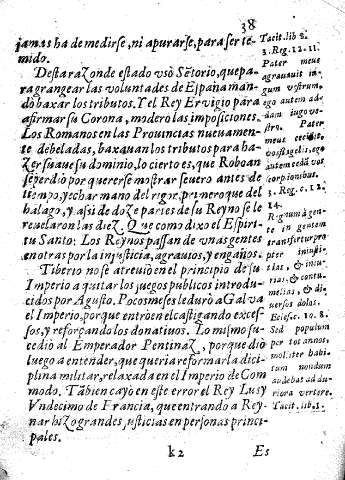 38
jamas ha de medirse, ni apurarse, para ser te-
mido.
Desta razon de estado usò Sẽrtorio, que pa-
ra grangear las voluntades de España man-
dò baxar los tributos. Y el Rey Ervigio para
afirmar su Corona, moderò las imposiciones.
Los Romanos en las Prouincias nueuamen-
te debeladas, baxauan los tributos para ha-
zer suaue su dominio, lo cierto es, que Roboan
se perdio por quererse mostrar seuero antes de
tiempo, y echar mano del rigor, primero que del
halago, y assi de doze partes de su Reyno se le
reuelaron las diez. Que como dixo el Espiri-
tu Santo: Los Reynos passan de unas gentes
en otras por la injusticia, agrauios, y engaños.
Tiberio no se atreuiò en el principio de su
Imperio a quitar los juegos publicos introdu-
cidos por Agusto. Pocos meses le durò a Galva
el Imperio, porque entrò en el castigando exces-
sos, y reforçando los donatiuos. Lo mismo su-
cediò al Emperador Pentinaz, porque diò
luego a entender, que queria reformar la dici-
plina militar, relaxada en el Imperio de Com
modo. Tãbien cayò en este error el Rey Luis
Vndecimo de Francia, que entrando a Rey-
nar hizo grandes justicias en personas princi-
pales.
k2 Es
Tacit. lib 2.
3. Reg. 12. 11.
Pater meus
agrauauit iu-
gum vestrum,
ego autem ad-
dam iugo ve-
stro. Pater
meus cecidit
vos flagelis, ego
autem cedã vos
scorpionibus.
3. Reg. c. 12.
14.
Regnum à gen-
te in gentem
transfertur pro
pter iniusti-
tias, & iniu-
rias, & contu-
melias, & di-
uersos dolos.
Eccles. c. 10. 8.
Sed populum
per tot annos,
molliter habi-
tum nondum
audebat ad du-
riora vertere.
Tacit. lib. 1.